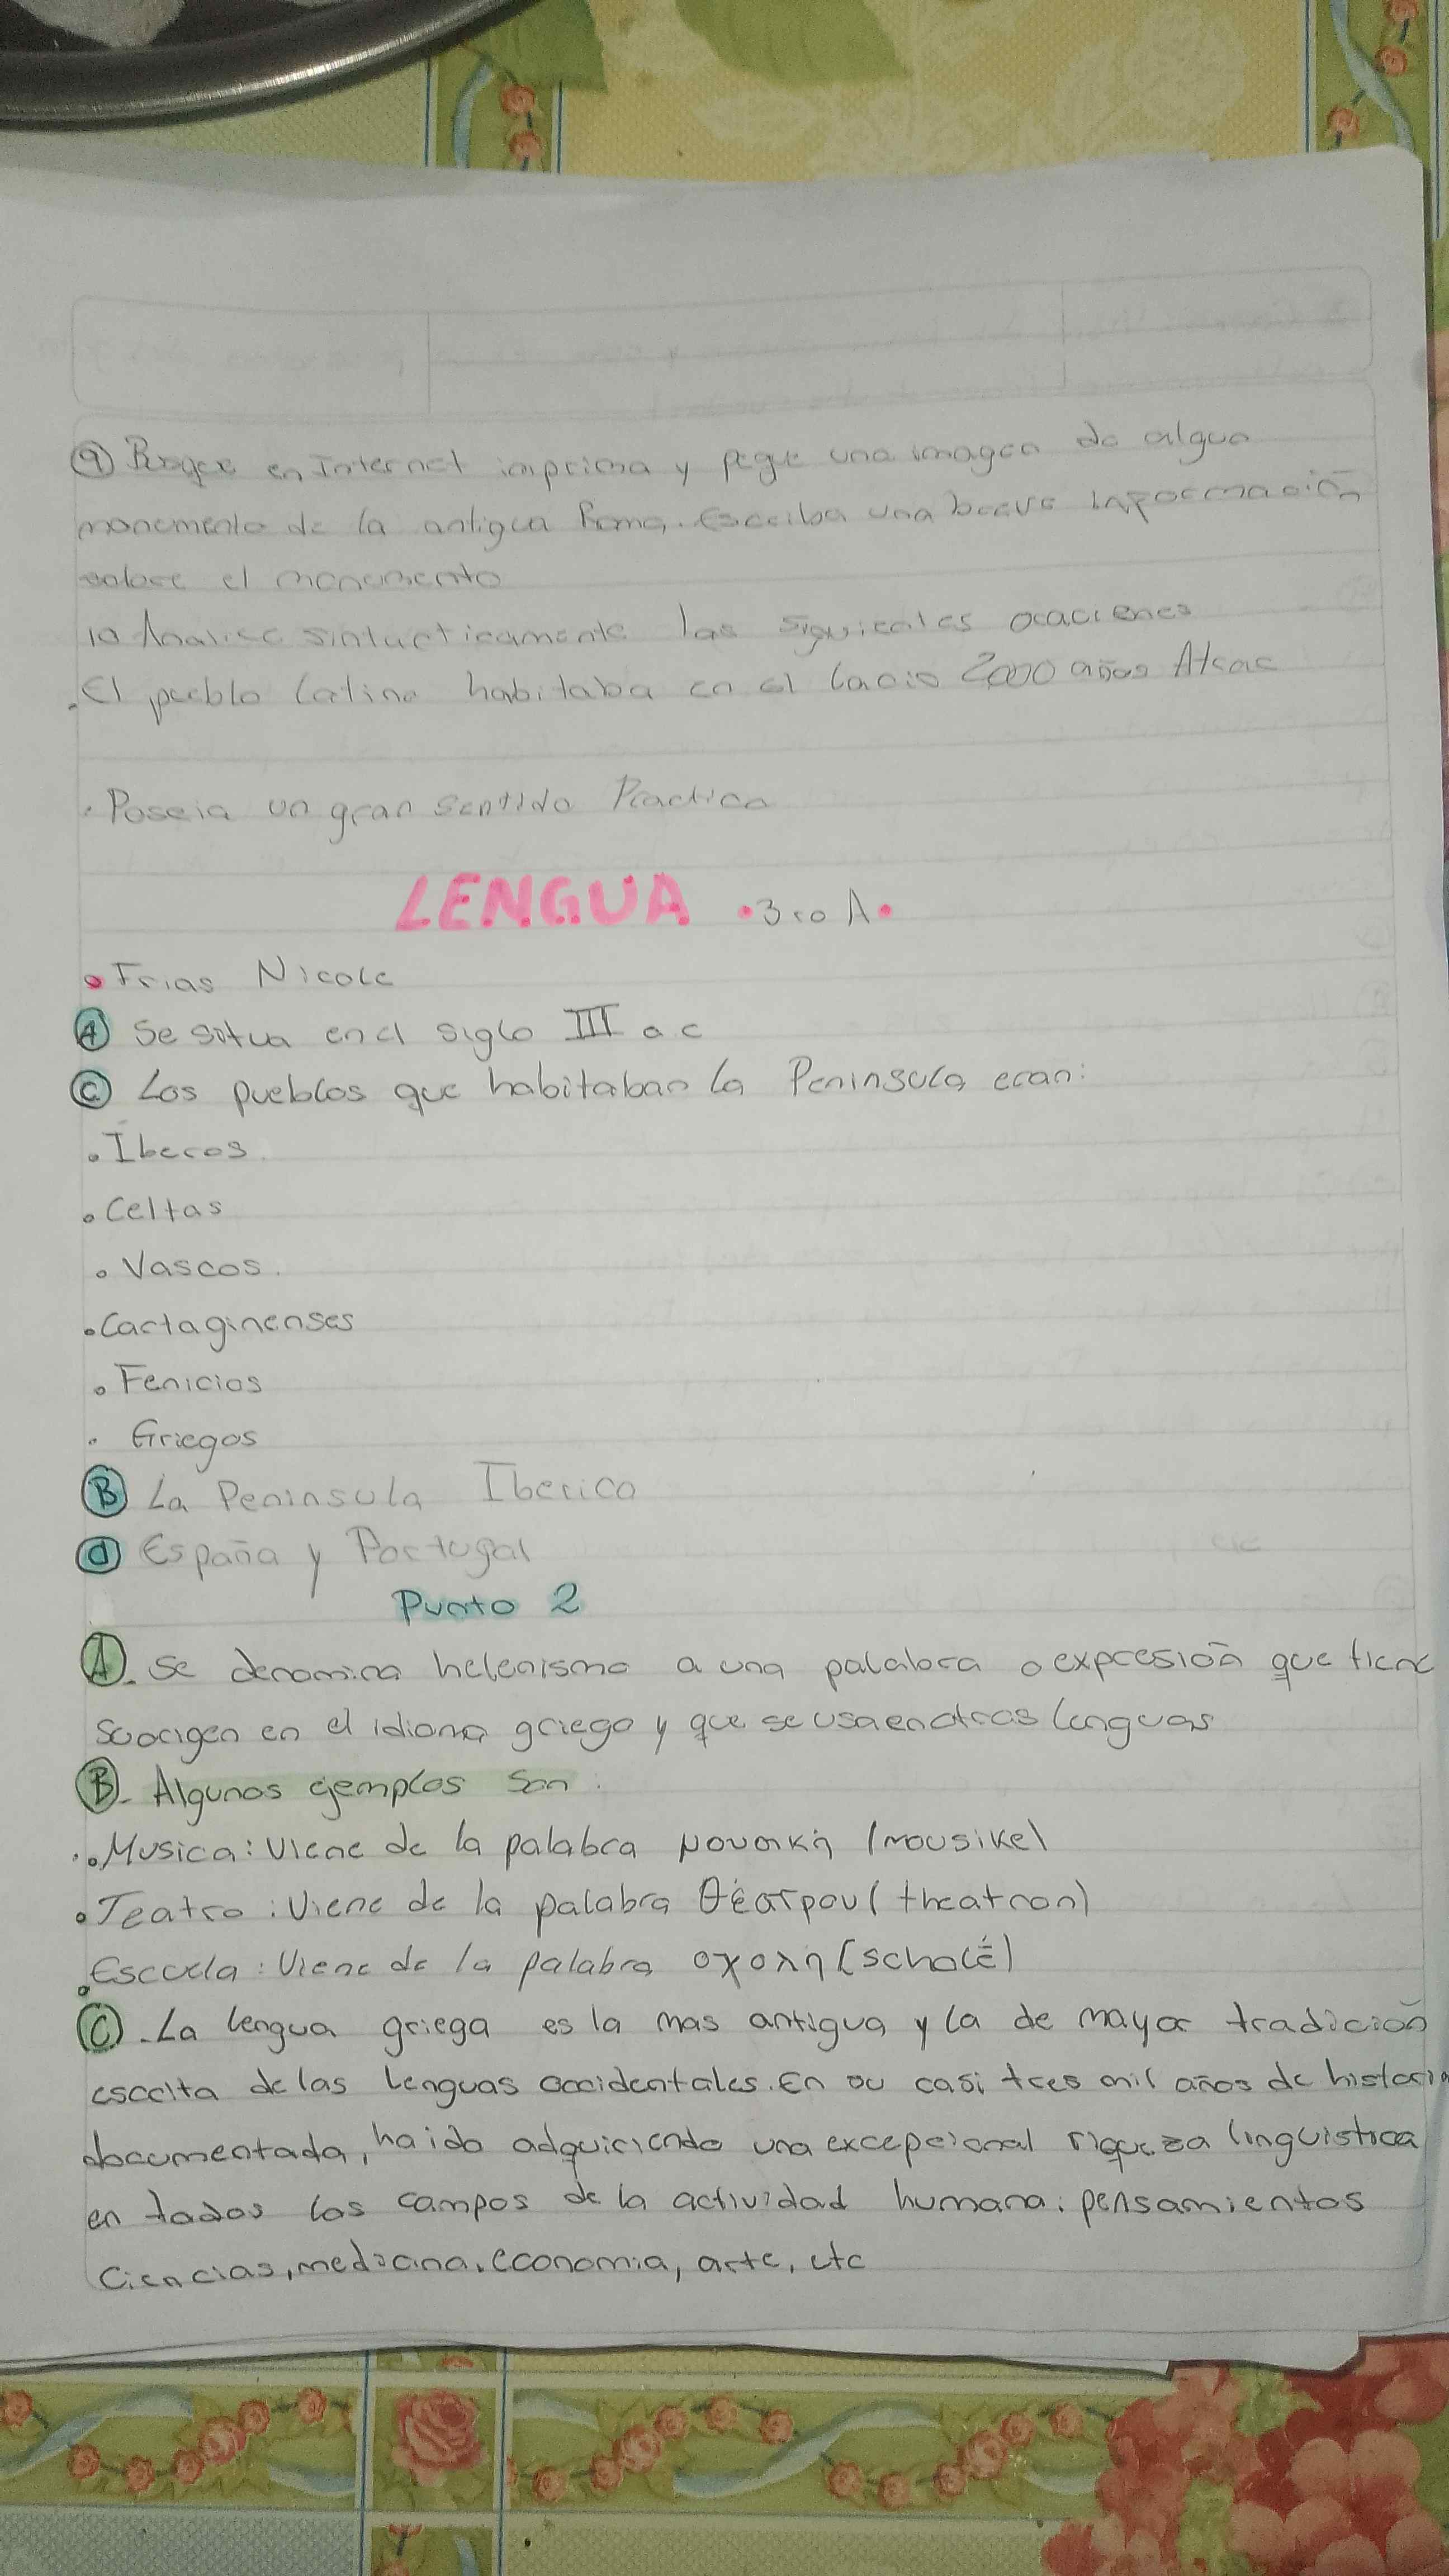 9 Busque en Internet imprima y pege una imagen de algun
monumento de la antigua Roma. Escriba una breve información
sobre el monumento
10 Analise sintacticamente las siguientes oraciones
. El pueblo latino habitaba en el Lacio 2000 años Atras
. Poseia un gran sentido Practico
LENGUA • 3ro A •
• Frias Nicole
A Se situa en el siglo III a c
C Los pueblos que habitaban la Peninsula eran:
• Iberos.
• Celtas
• Vascos.
• Cartaginenses
• Fenicios
• Griegos
B La Peninsula Iberica
d España y Portugal
Punto 2
A. Se denomina helenismo a una palabra o expresión que tiene
su origen en el idioma griego y que se usa en otras lenguas
B. Algunos ejemplos son:
• Musica: Viene de la palabra μουσικη (mousike)
• Teatro: Viene de la palabra Θέατρου (theatron)
• Escuela: Viene de la palabra σχολη (scholé)
C. La lengua griega es la mas antigua y la de mayor tradición
escrita de las lenguas occidentales. En su casi tres mil años de historia
documentada, ha ido adquiriendo una excepcional riqueza linguistica
en todos los campos de la actividad humana: pensamientos
Ciencias, medicina, economia, arte, etc